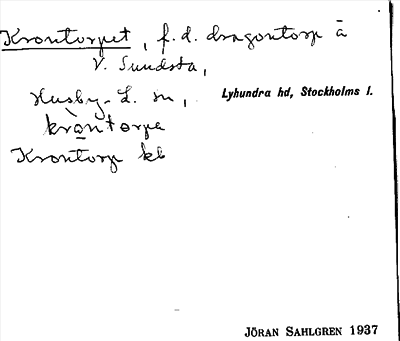 Krontorpet, f.d. dragontorp å
V. Sundsta,
Husby-L. sn, Lyhundra hd, Stockholms l.
kròntorpe
Krontorp kb
JÖRAN SAHLGREN 1937